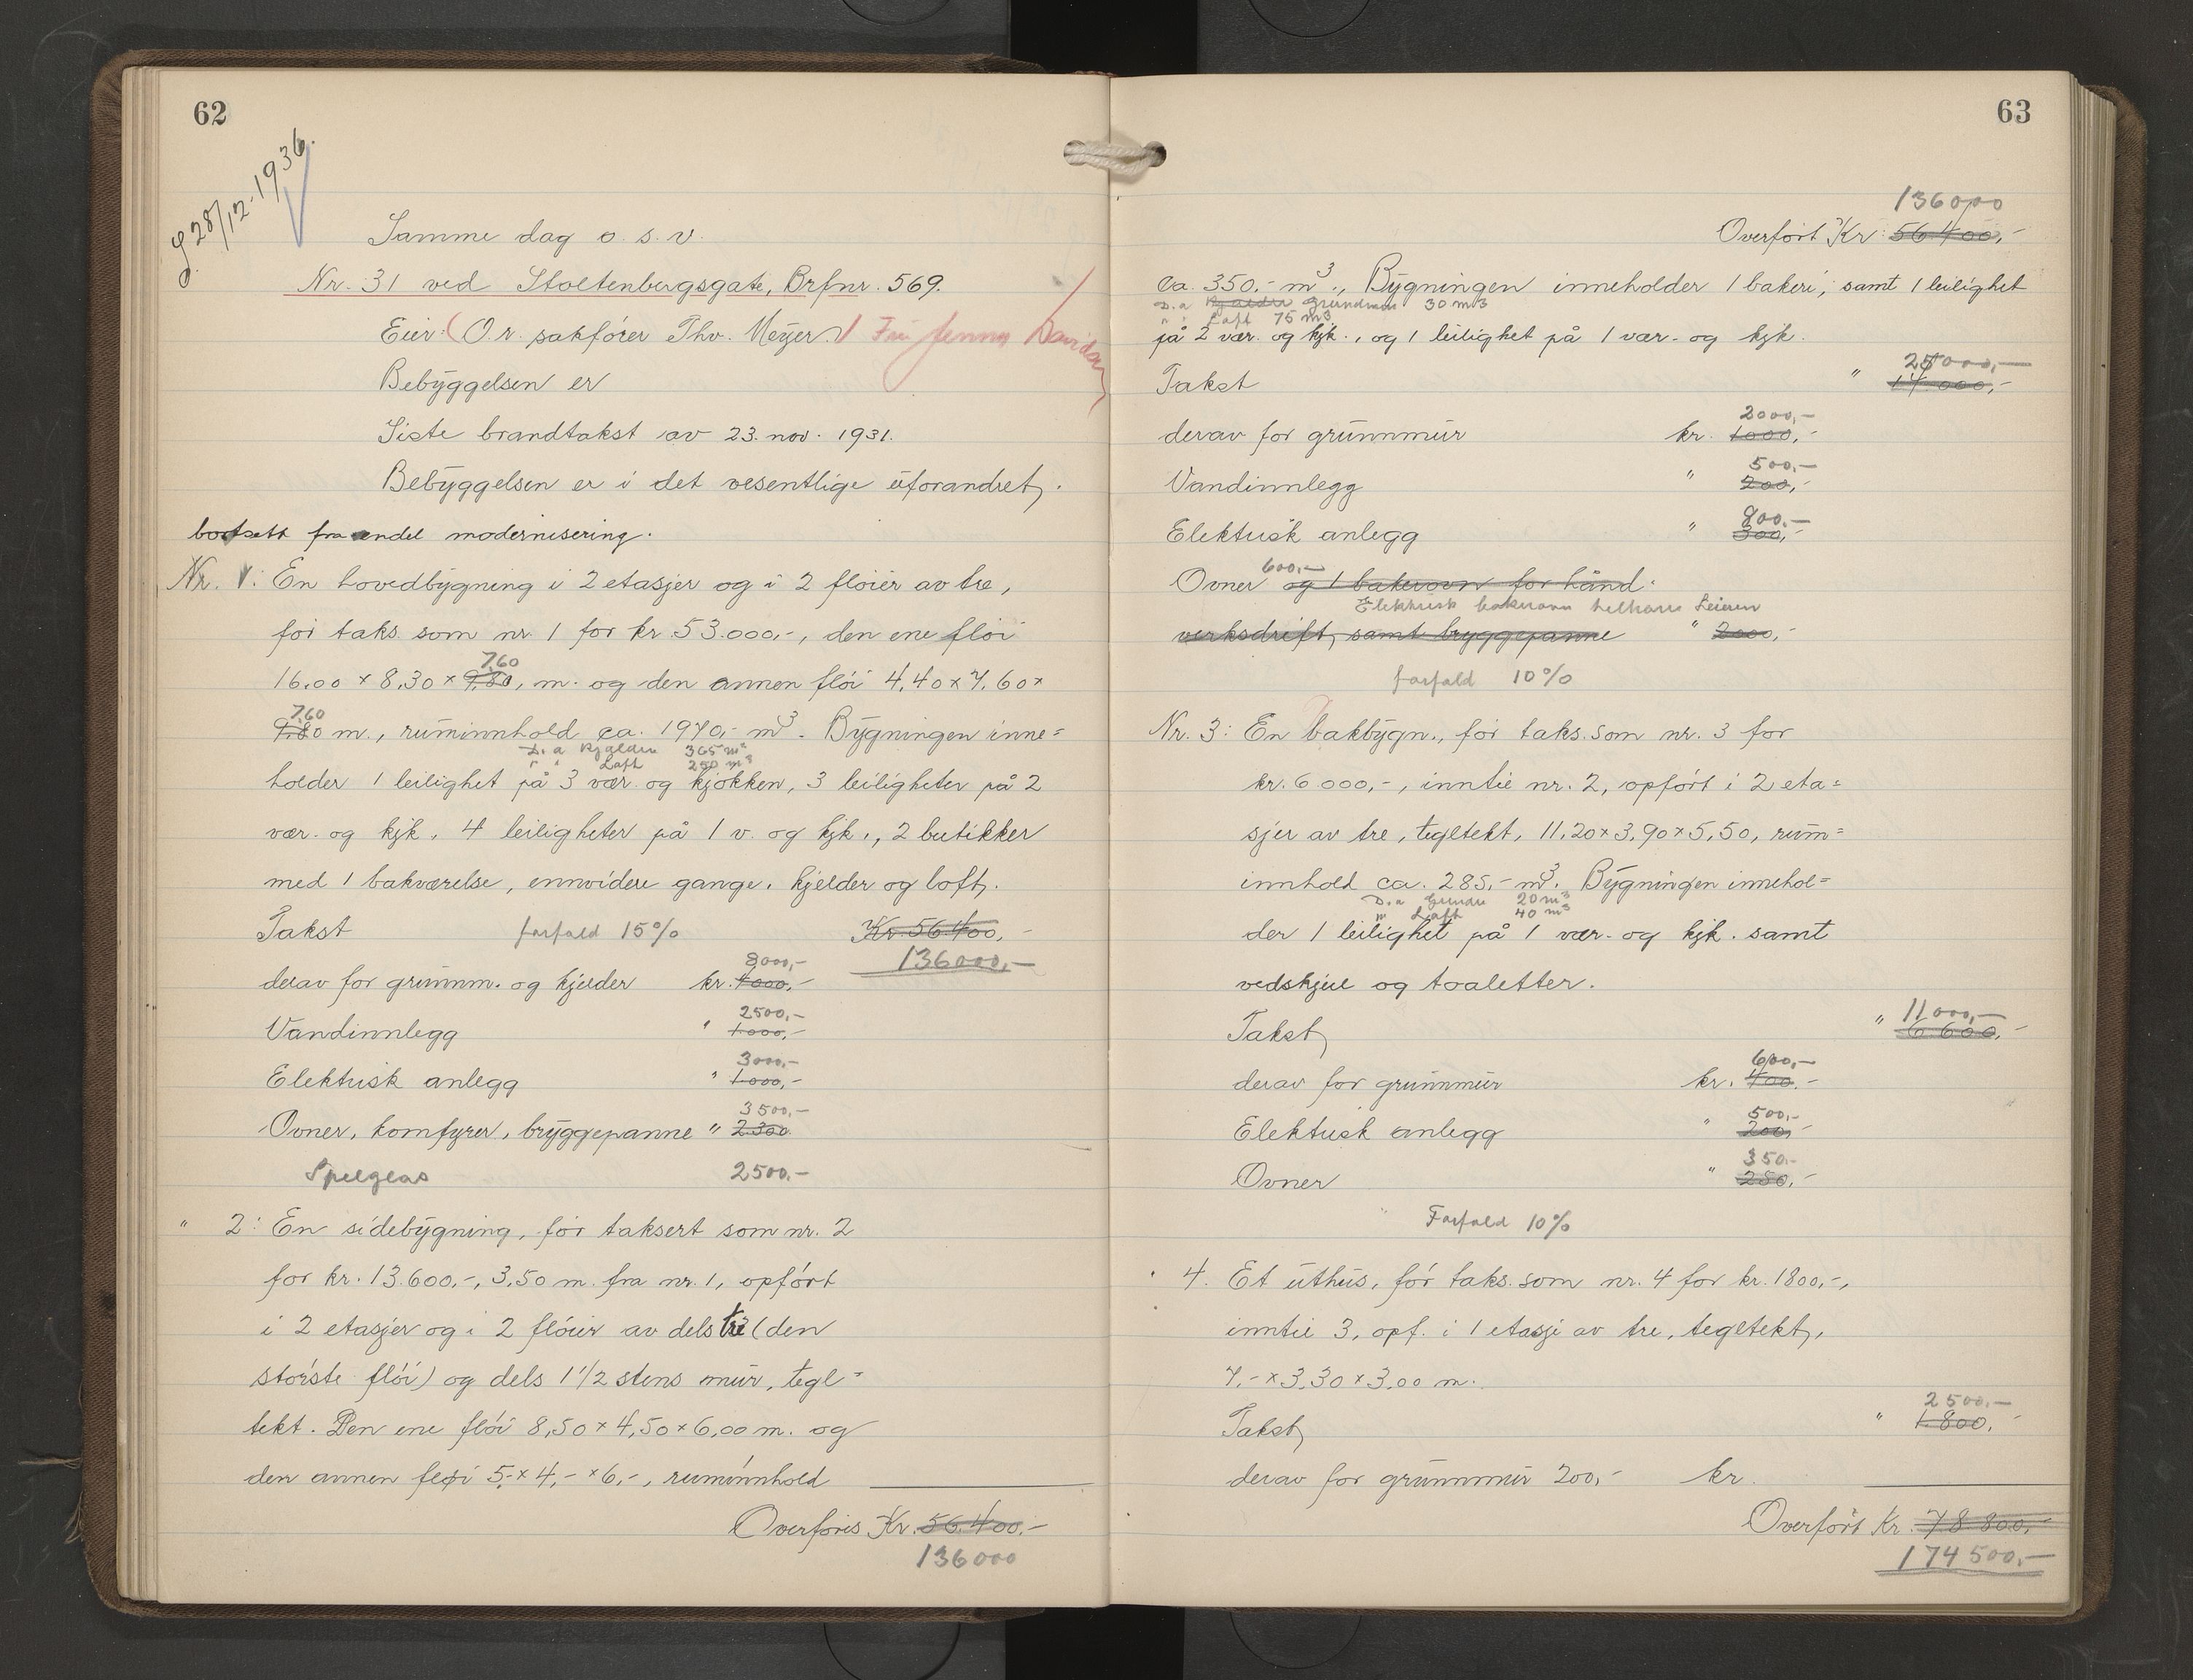 62
28/12-1936.
Samme dag o. s. v.
Nr. 31 ved Stoltenbergsgate, Brfnr. 569.
Eier: (O.r. sakfører Thv. Meyer.) Fru Jenny Davidsen
Bebyggelsen er
Siste brandtakst av 23. nov. 1931.
Bebyggelsen er i det vesentlige uforandret,
bortsett fra endel modernisering.
Nr. 1: En hovedbygning i 2 etasjer og i 2 fløier av tre,
før taks. som nr. 1 for kr. 53.000,-, den ene fløi
7,60
16,00 x 8,30 x 9,80, m. og den annen fløi 4,40 x 7,60 x
7,60
9,80 m., ruminnhold ca. 1970,- m³. Bygningen inne=
D. a Kjelder 365 m³
" " Loft 250 m³
holder 1 leilighet på 3 vær. og kjøkken, 3 leiligheter på 2
vær. og kjk. 4 leiligheter på 1 v. og kjk., 2 butikker
med 1 bakværelse, ennvidere gange, kjelder og loft.
Takst forfald 15% Kr. 56.400,-
8000,- 136000,-
derav for grunnm. og kjelder kr. 4000,-
2500,-
Vandinnlegg " 1.000,-
3000,-
Elektrisk anlegg " 1.000,-
3500,-
Ovner, komfyrer, bryggepanne " 2300
Speilglas 2500,-
" 2: En sidebygning, før taksert som nr. 2
for kr. 13.600,-, 3,50 m. fra nr. 1, opført
i 2 etasjer og i 2 fløier av dels tre (den
største fløi) og dels 1 1/2 stens mur, tegl=
tekt. Den ene fløi 8,50 x 4,50 x 6,00 m. og
den annen fløi 5,- x 4,- x 6,-, ruminnhold
Overføres Kr. 56.400,-
136000
63
136000
Overført Kr. 56.400,-
ca. 350,- m³., Bygningen inneholder 1 bakeri, samt 1 leilighet
D. a Kjelder Grundmur 30 m3
" " Loft 75 m3
på 2 vær. og kjk., og 1 leilighet på 1 vær. og kjk.
25000,-
Takst " 17.000,-
2000,-
derav for grunnmur kr. 1000,-
500,-
Vandinnlegg " 200,-
800,-
Elektrisk anlegg " 300,-
600,-
Ovner og 1 bakerovn for hånd-
Elektrisk bakerovn tilhører Leieren
verksdrift, samt bryggepanne " 2000,-
forfald 10%
Nr. 3: En bakbygn., før taks. som nr. 3 for
kr. 6.000,-, inntil nr. 2, opført i 2 eta=
sjer av tre, tegltekt, 11,20 x 3,90 x 5,50, rum=
innhold ca. 285,- m³. Bygningen innehol=
D. a Grundm 20 m³
" Loft 40 m³
der 1 leilighet på 1 vær. og kjk. samt
vedskjul og toaletter.
11000,-
Takst " 6.600,-
600,-
derav for grunnmur kr. 400,-
500,-
Elektrisk anlegg " 200,-
350,-
Ovner " 250,-
Forfald 10%
" 4. Et uthus, før taks. som nr. 4 for kr. 1800,-,
inntil 3, opf. i 1 etasje av tre, tegltekt,
7,- x 3,30 x 3,00 m.
2500,-
Takst " 1.800,-
derav for grunnmur 200,- kr.
Overført Kr. 78.800,-
174500,-